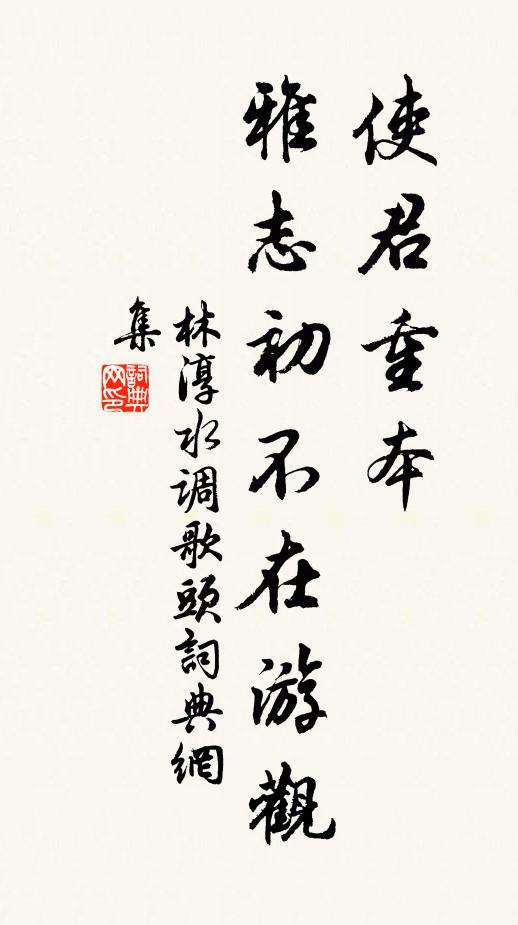 使君重本
雅志初不在游觀
林淳水调歌頭詞典網
集
詞典
网印